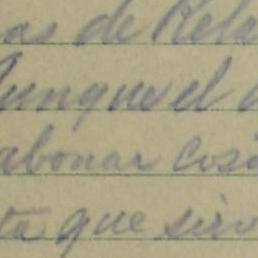 as de Rela
Aunque el a
abonar cos
ta que sirv